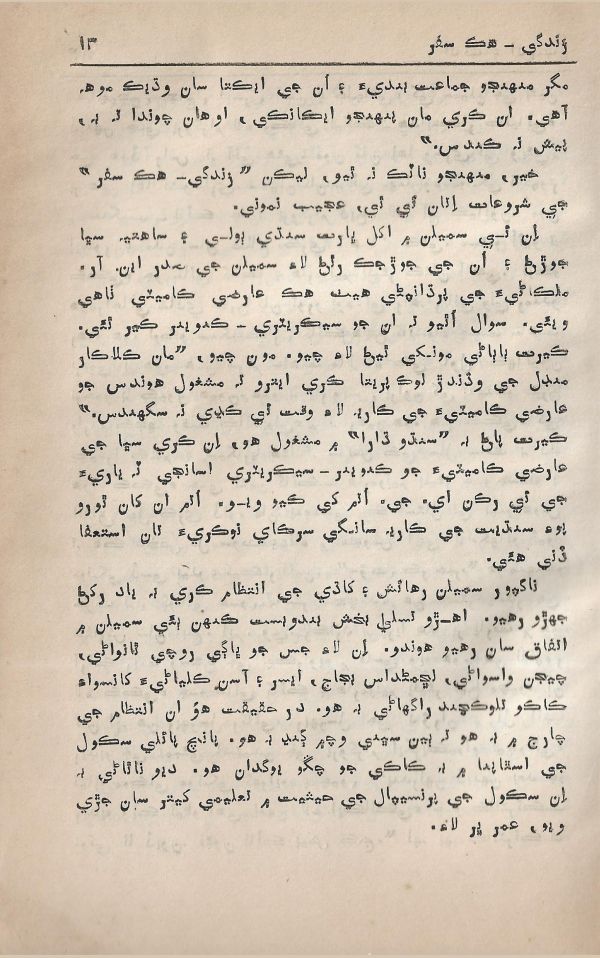 زندگي ـ هڪ سفر ١٣
مگر منهنجو جماعت بنديءَ ۽ اُن جي ايڪتا سان وڌيڪ موهہ
آهي. ان ڪري مان پنهنجو ايڪانڪي، اوهان چوندا تہ بہ،
پيش نہ ڪندس.“
خير، منهنجو ناٽڪ نہ ٿيو، ليڪن ”زندگي۔ هڪ سفر“
جي شروعات اِتان ئي ٿي، عجيب نموني.
اِن ئي سميلن ۾ اکل ڀارت سنڌي ٻولي ۽ ساهتيہ سڀا
جوڙڻ ۽ اُن جي جوڙجڪ رٿڻ لاءِ سميلن جي صدر اين. آر.
ملڪاڻيءَ جي پرڌانگي هيٺ هڪ عارضي ڪاميٽي ٺاهي
ويئي. سوال اُٿيو تہ ان جو سيڪريٽري ـ ڪنوينر ڪير ٿئي.
ڪيرت ٻاٻاڻي مونکي ٿيڻ لاءِ چيو. مون چيو، ”مان ڪلاڪار
منڊل جي وڌندڙ لوڪ پريتا ڪري ايترو تہ مشغول هوندس جو
عارضي ڪاميٽيءَ جي ڪاريہ لاءِ وقت ئي ڪڍي نہ سگهندس.“
ڪيرت پاڻ بہ ”سنڌو ڌارا“ ۾ مشغول هو، اِن ڪري سڀا جي
عارضي ڪاميٽيءَ جو ڪنوينر ـ سيڪريٽري اسانجي ئي پارٽيءَ
جي ئي رڪن اي. جي. اُتم کي ڪيو ويو. اُتم ان کان ٿورو
پوءِ سنڌيت جي ڪاريہ سانگي سرڪاي نوڪريءَ تان استعفا
ڏني هئي.
ناگپور سميلن رهائش ۽ کاڌي جي انتظام ڪري بہ ياد رکڻ
جهڙو رهيو. اهڙو تسلي بخش بندوبست ڪنهن ٻئي سميلن ۾
اتفاق سان رهيو هوندو. اِن لاءِ جس جو ڀاڳي روچي ٿانواڻي،
چيٽن واسواڻي، لڇمڻداس بجاج، ايسر ۽ آسن ڪلياڻيءَ کانسواءِ
ڪاڪو تلوڪچند راگهاڻي بہ هو. در حقيقت هوُ ان انتظام جي
چارج ۾ بہ هو تہ ٻين سڀني وچ ۾ ڳنڍ بہ هو. پانچ پائلي سڪول
جي استاپنا ۾ بہ ڪاڪي جو چڱو يوگدان هو. ديو ناٿاڻي بہ
اِن سڪول جي پرنسيپال جي حيثيت ۾ تعليمي کيتر سان جڙي
ويو، عمر ڀر لاءِ.